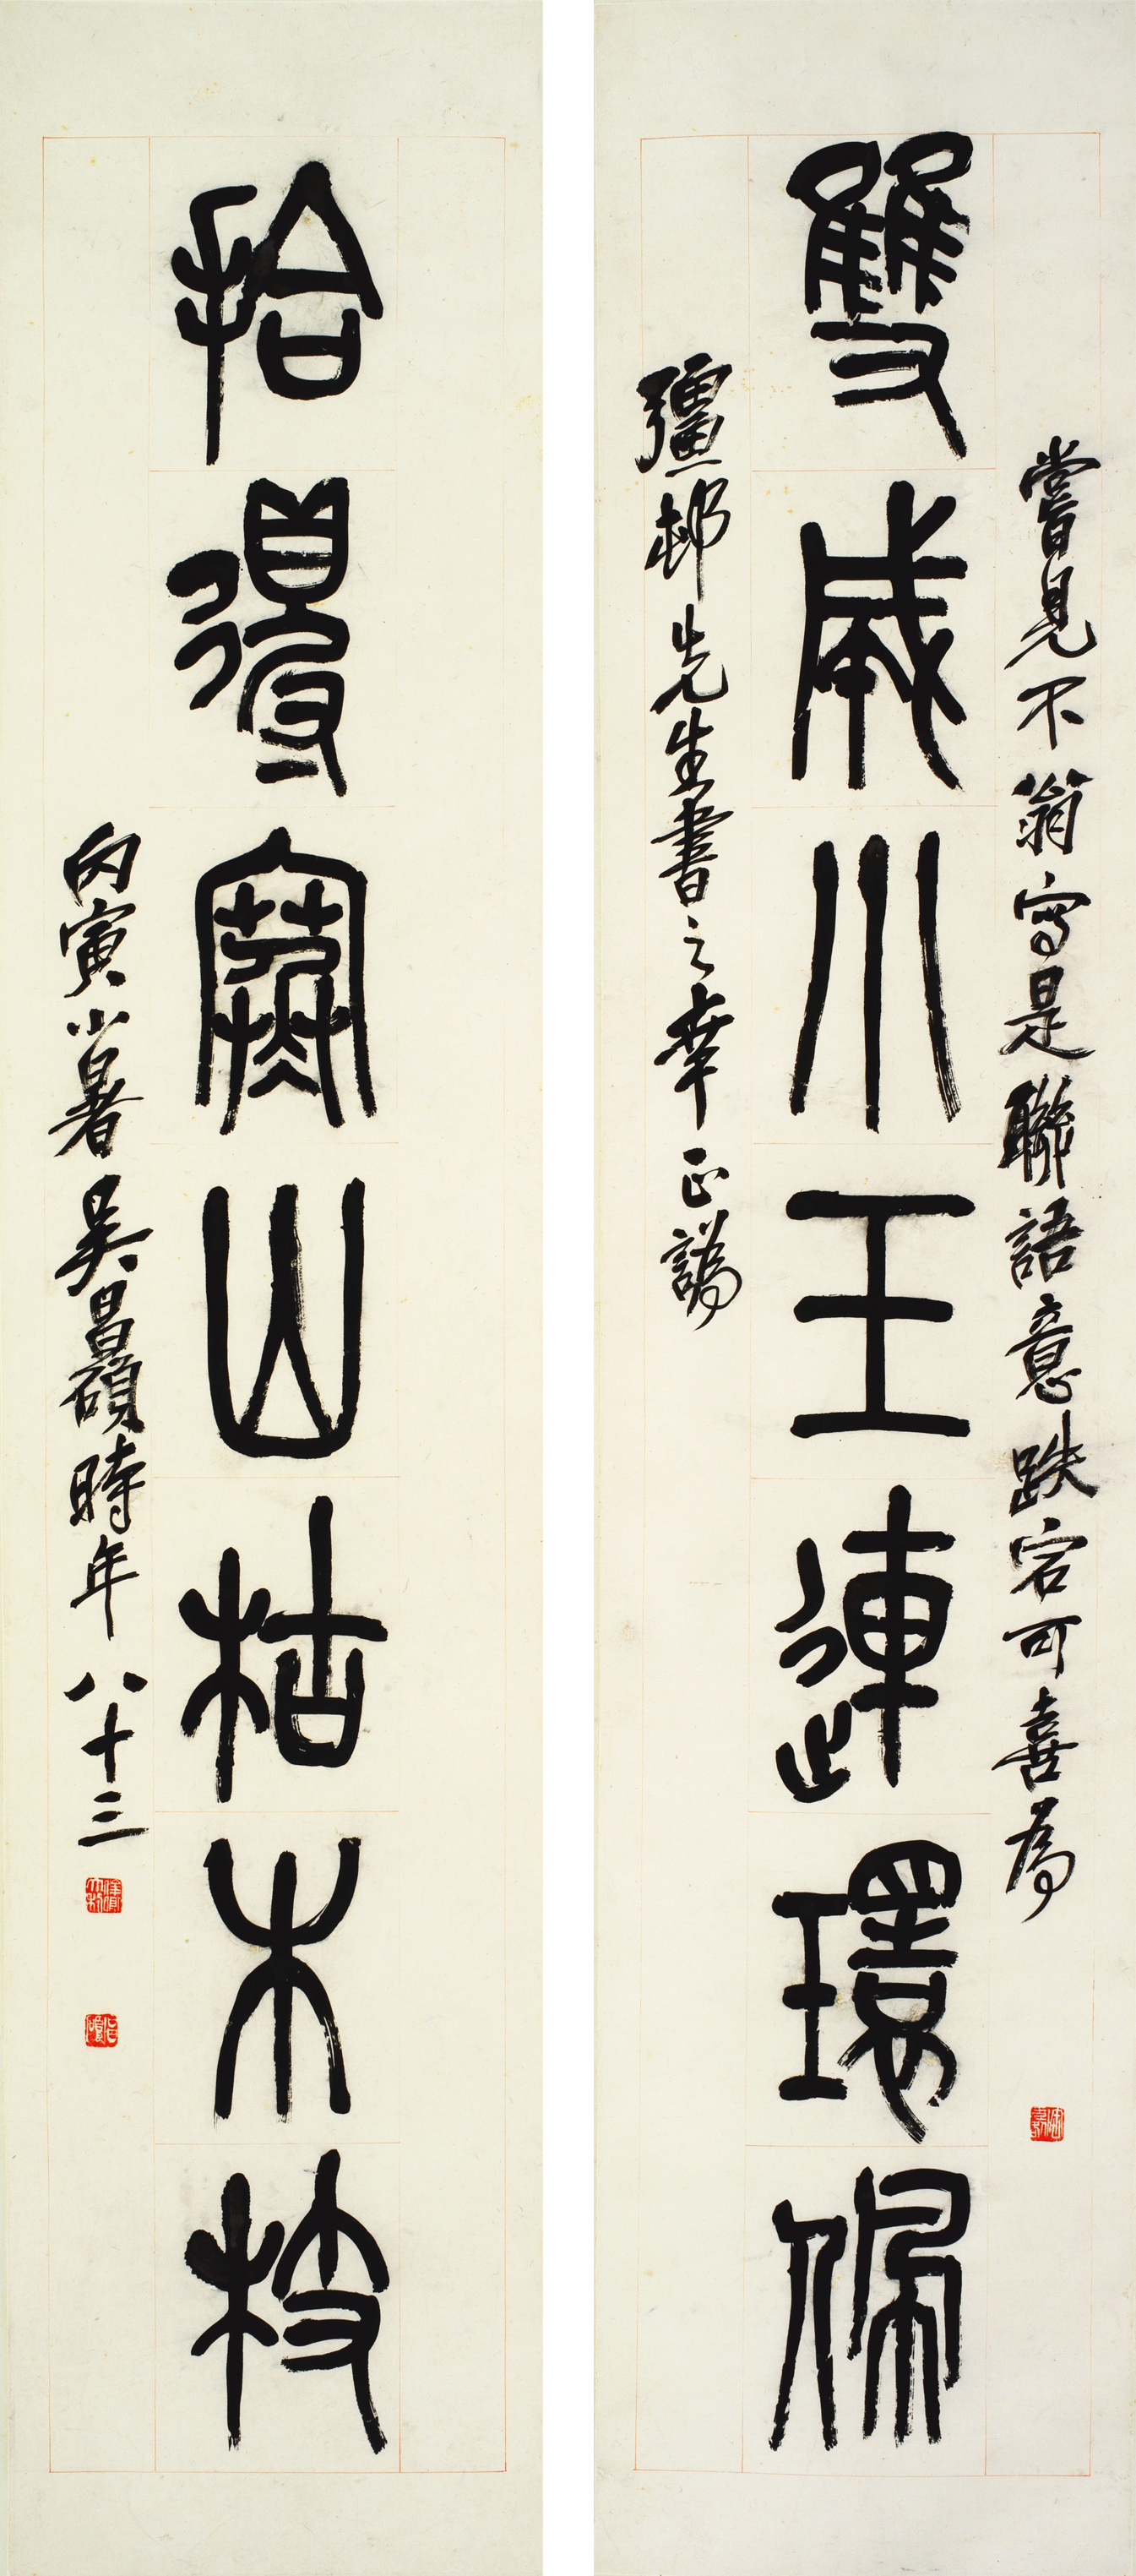 雙成小玉連環佩
嘗見不翁寫是聯語意跌宕可喜為
彊邨先生書之幸正譌
拾得寒山枯木枝
丙寅小暑吳昌碩時年八十三